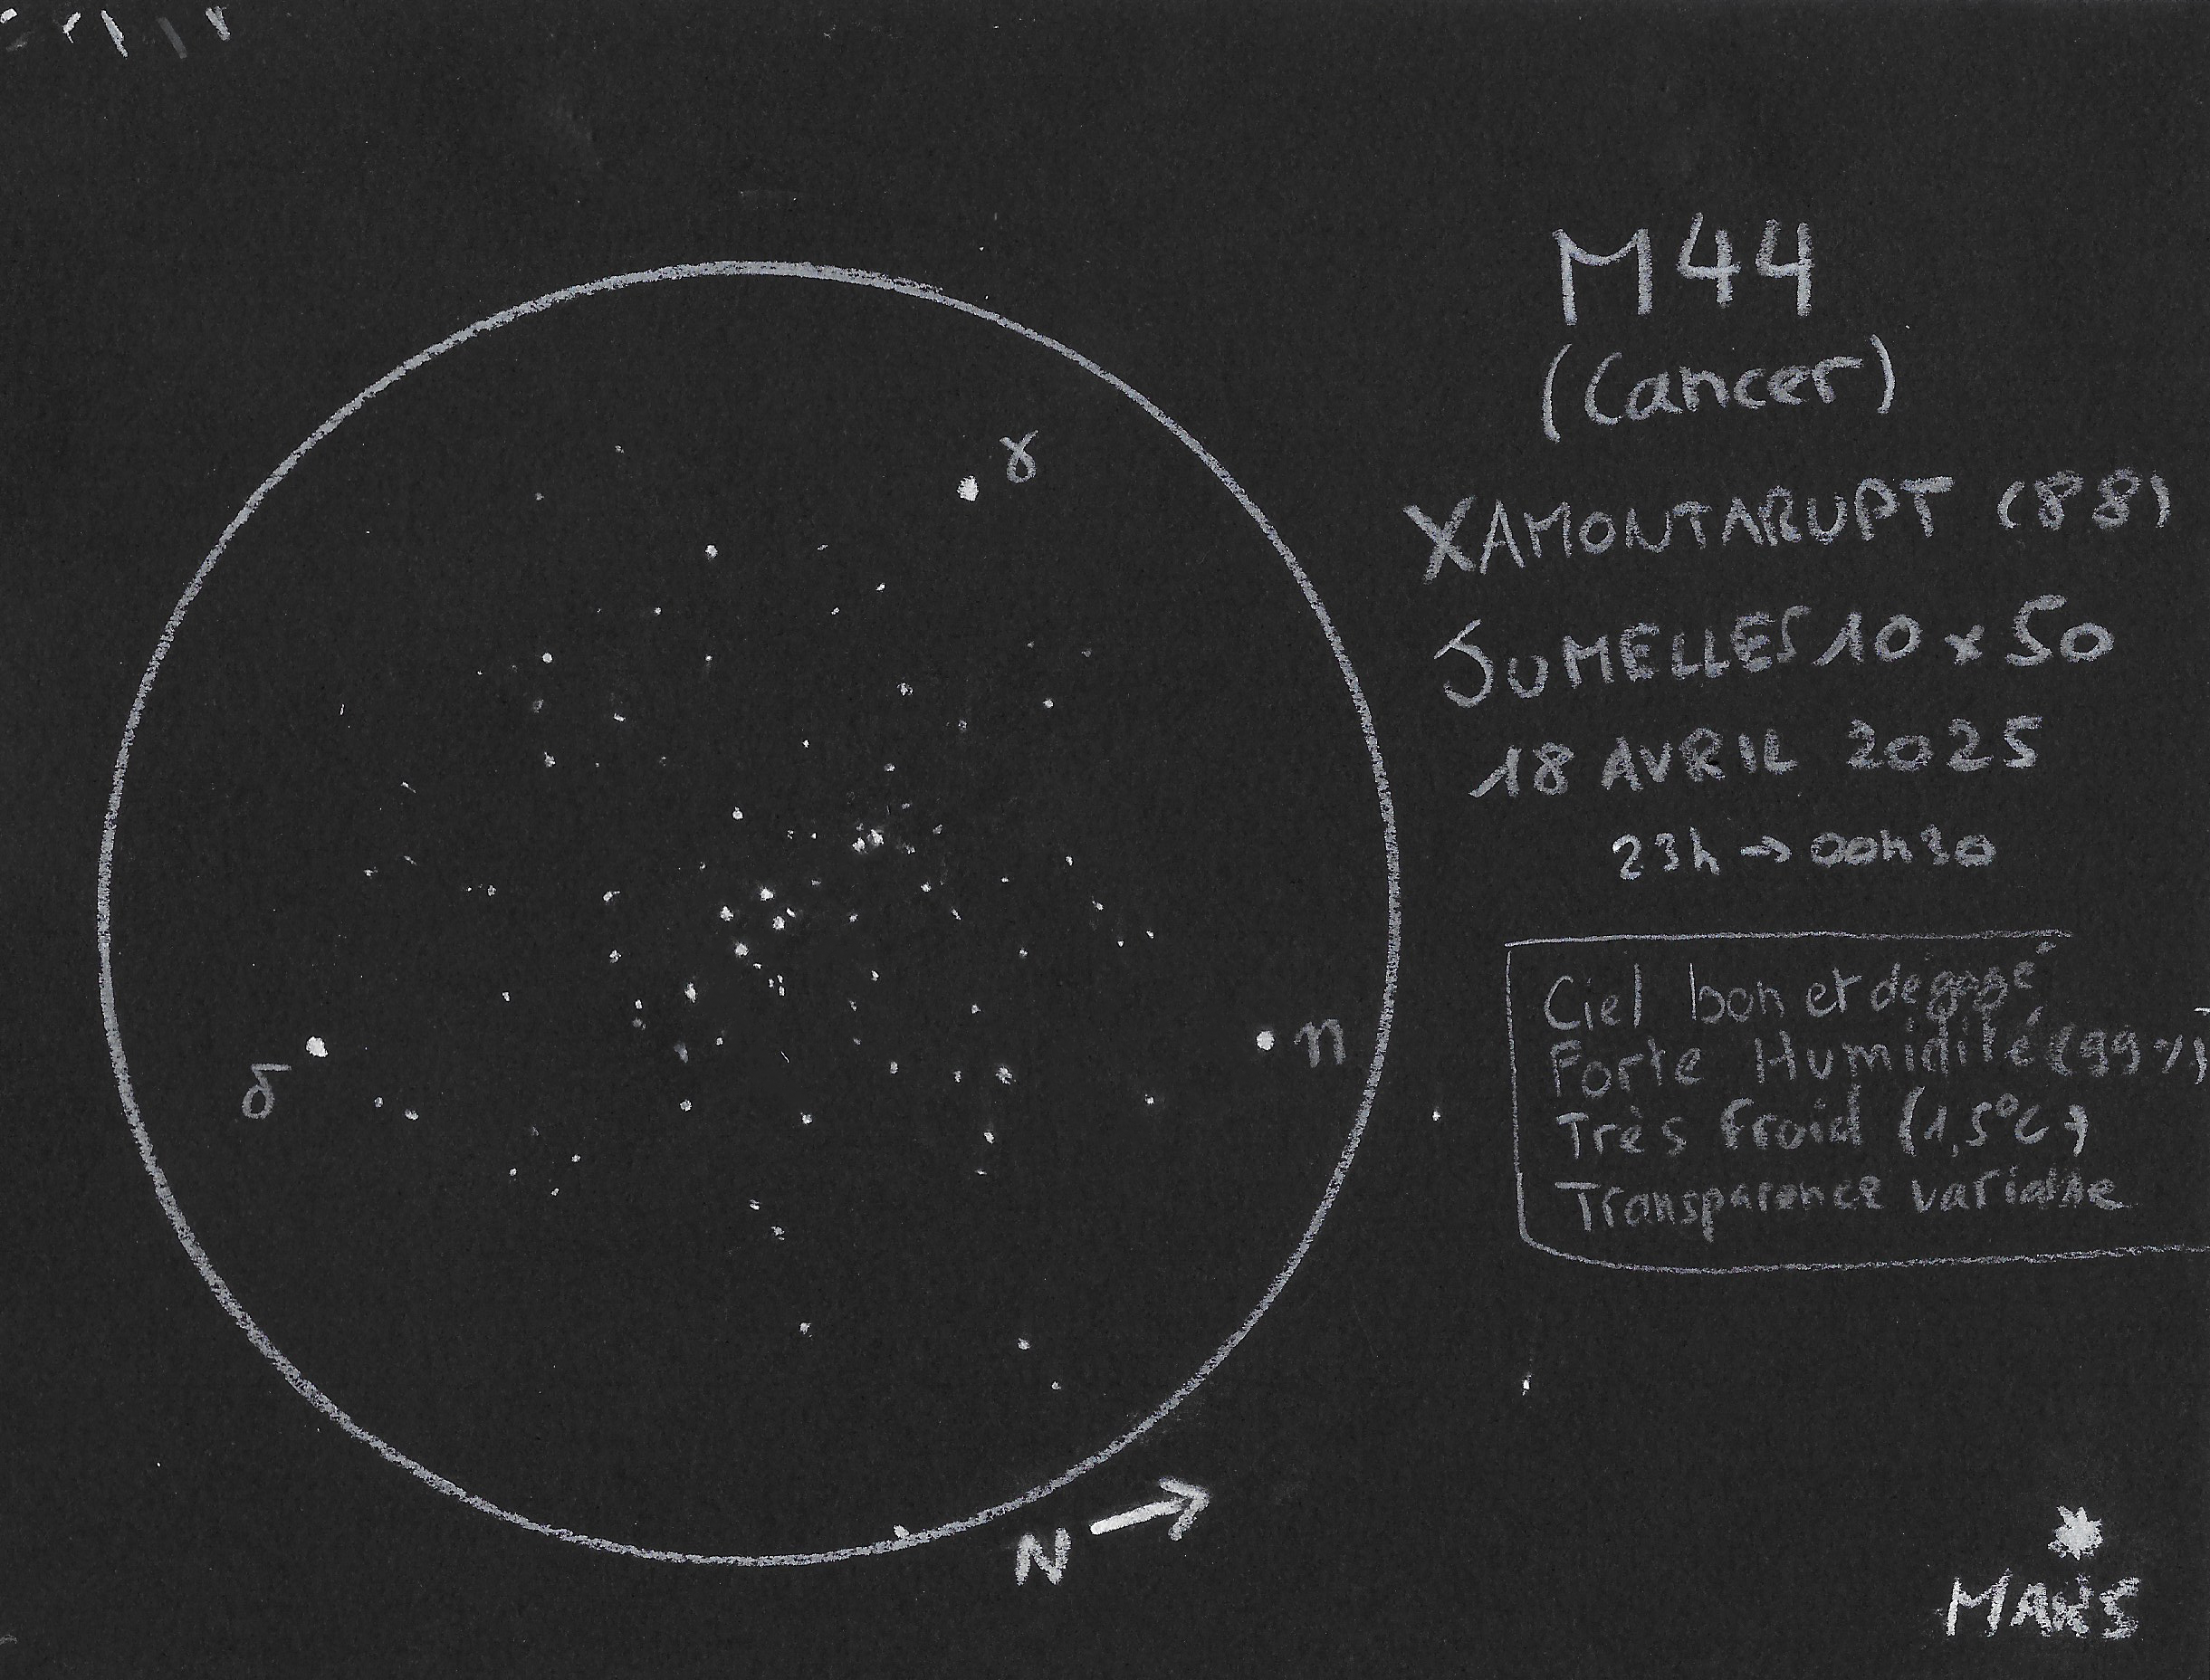 M44
(Cancer)
XAMONTARUPT (88)
JUMELLES 10x50
18 AVRIL 2025
23h → 00h30
Ciel bon et dégagé
Forte Humidité (99%)
Très froid (1,5°C)
Transparence variable
γ
δ
η
N →
MARS